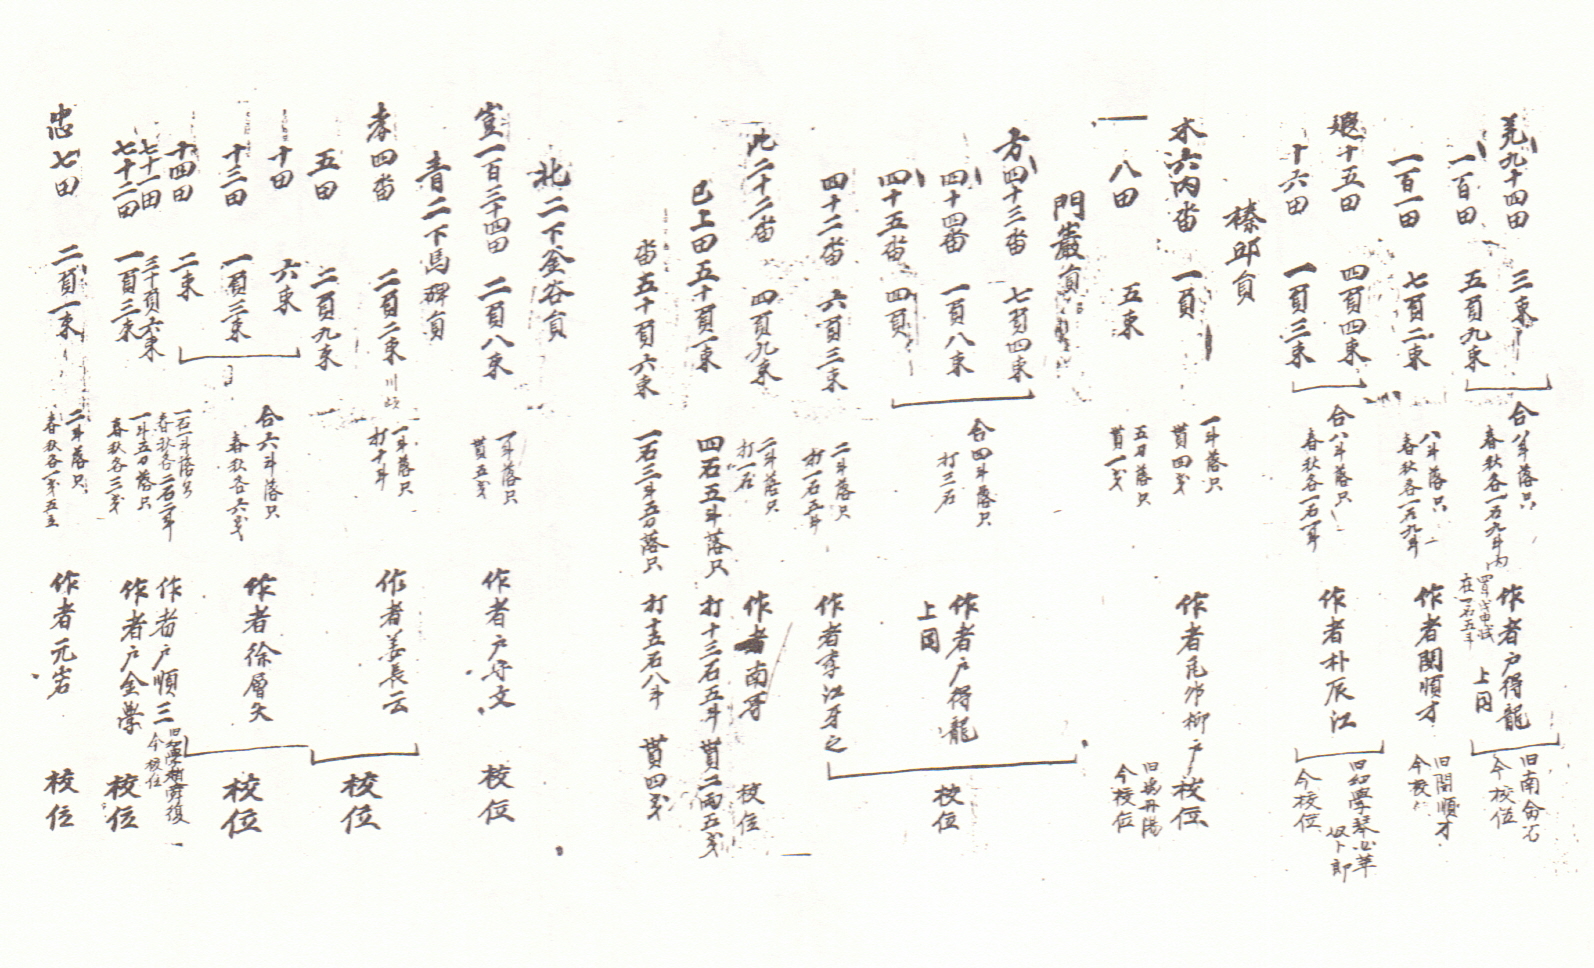 羌九十四田 三束
一百田 五負九束 合八斗落只 春秋各一石九斗內 作者戶得龍 上同 旧南
今校位
一百一田 七負二束 八斗落只 春秋各一石九斗 作者閔順才 旧閔順才
今校
十五田 四負四束
十六田 一負三束 合八斗落只 春秋各一石 作者朴辰江 旧幼學琴
今校位
榛邱員
木六內畓 一負 一斗落只 貰四戔 校位
一 八田 五束 五刀落只 貰一戔
今校位
門巖員
方四十三畓 七負四束
四十四畓 一負八束
四十五畓 四負 合四斗落只 打三石 作者戶得龍 上同
四十二畓 六負三束 二斗落只 打一石五斗 作者李江牙之 校位
此二十二畓 四負九束 二斗落只 打一石 作者南 校位
已上田五十負一束 四石五斗落只 打十三石五斗 貰二兩五戔
畓五十負六束 一石三斗五刀落只 打十五石八斗 貰四戔
北二下釜谷員
宣一百三十四田 二負八束 一斗落只 貰五戔 作者戶守文 校位
青二下馬碑員
孝四畓 二負二束 川 一斗落只 打十斗 作者姜長云
五田 二負九束 校位
十田 六束
十三田 一負三束 合六斗落只 春秋各六戔 作者徐層矢 校位
十四田 二束 一石一斗落只 春秋各二石二斗 作者戶順三 今校位
七十一田 三十負六束 一斗五刀落只
七十二田 一負三束 春秋各三戔 作者戶金學 校位
忠七田 二負一束 二斗落只 春秋各一戔五 作者元岩 校位